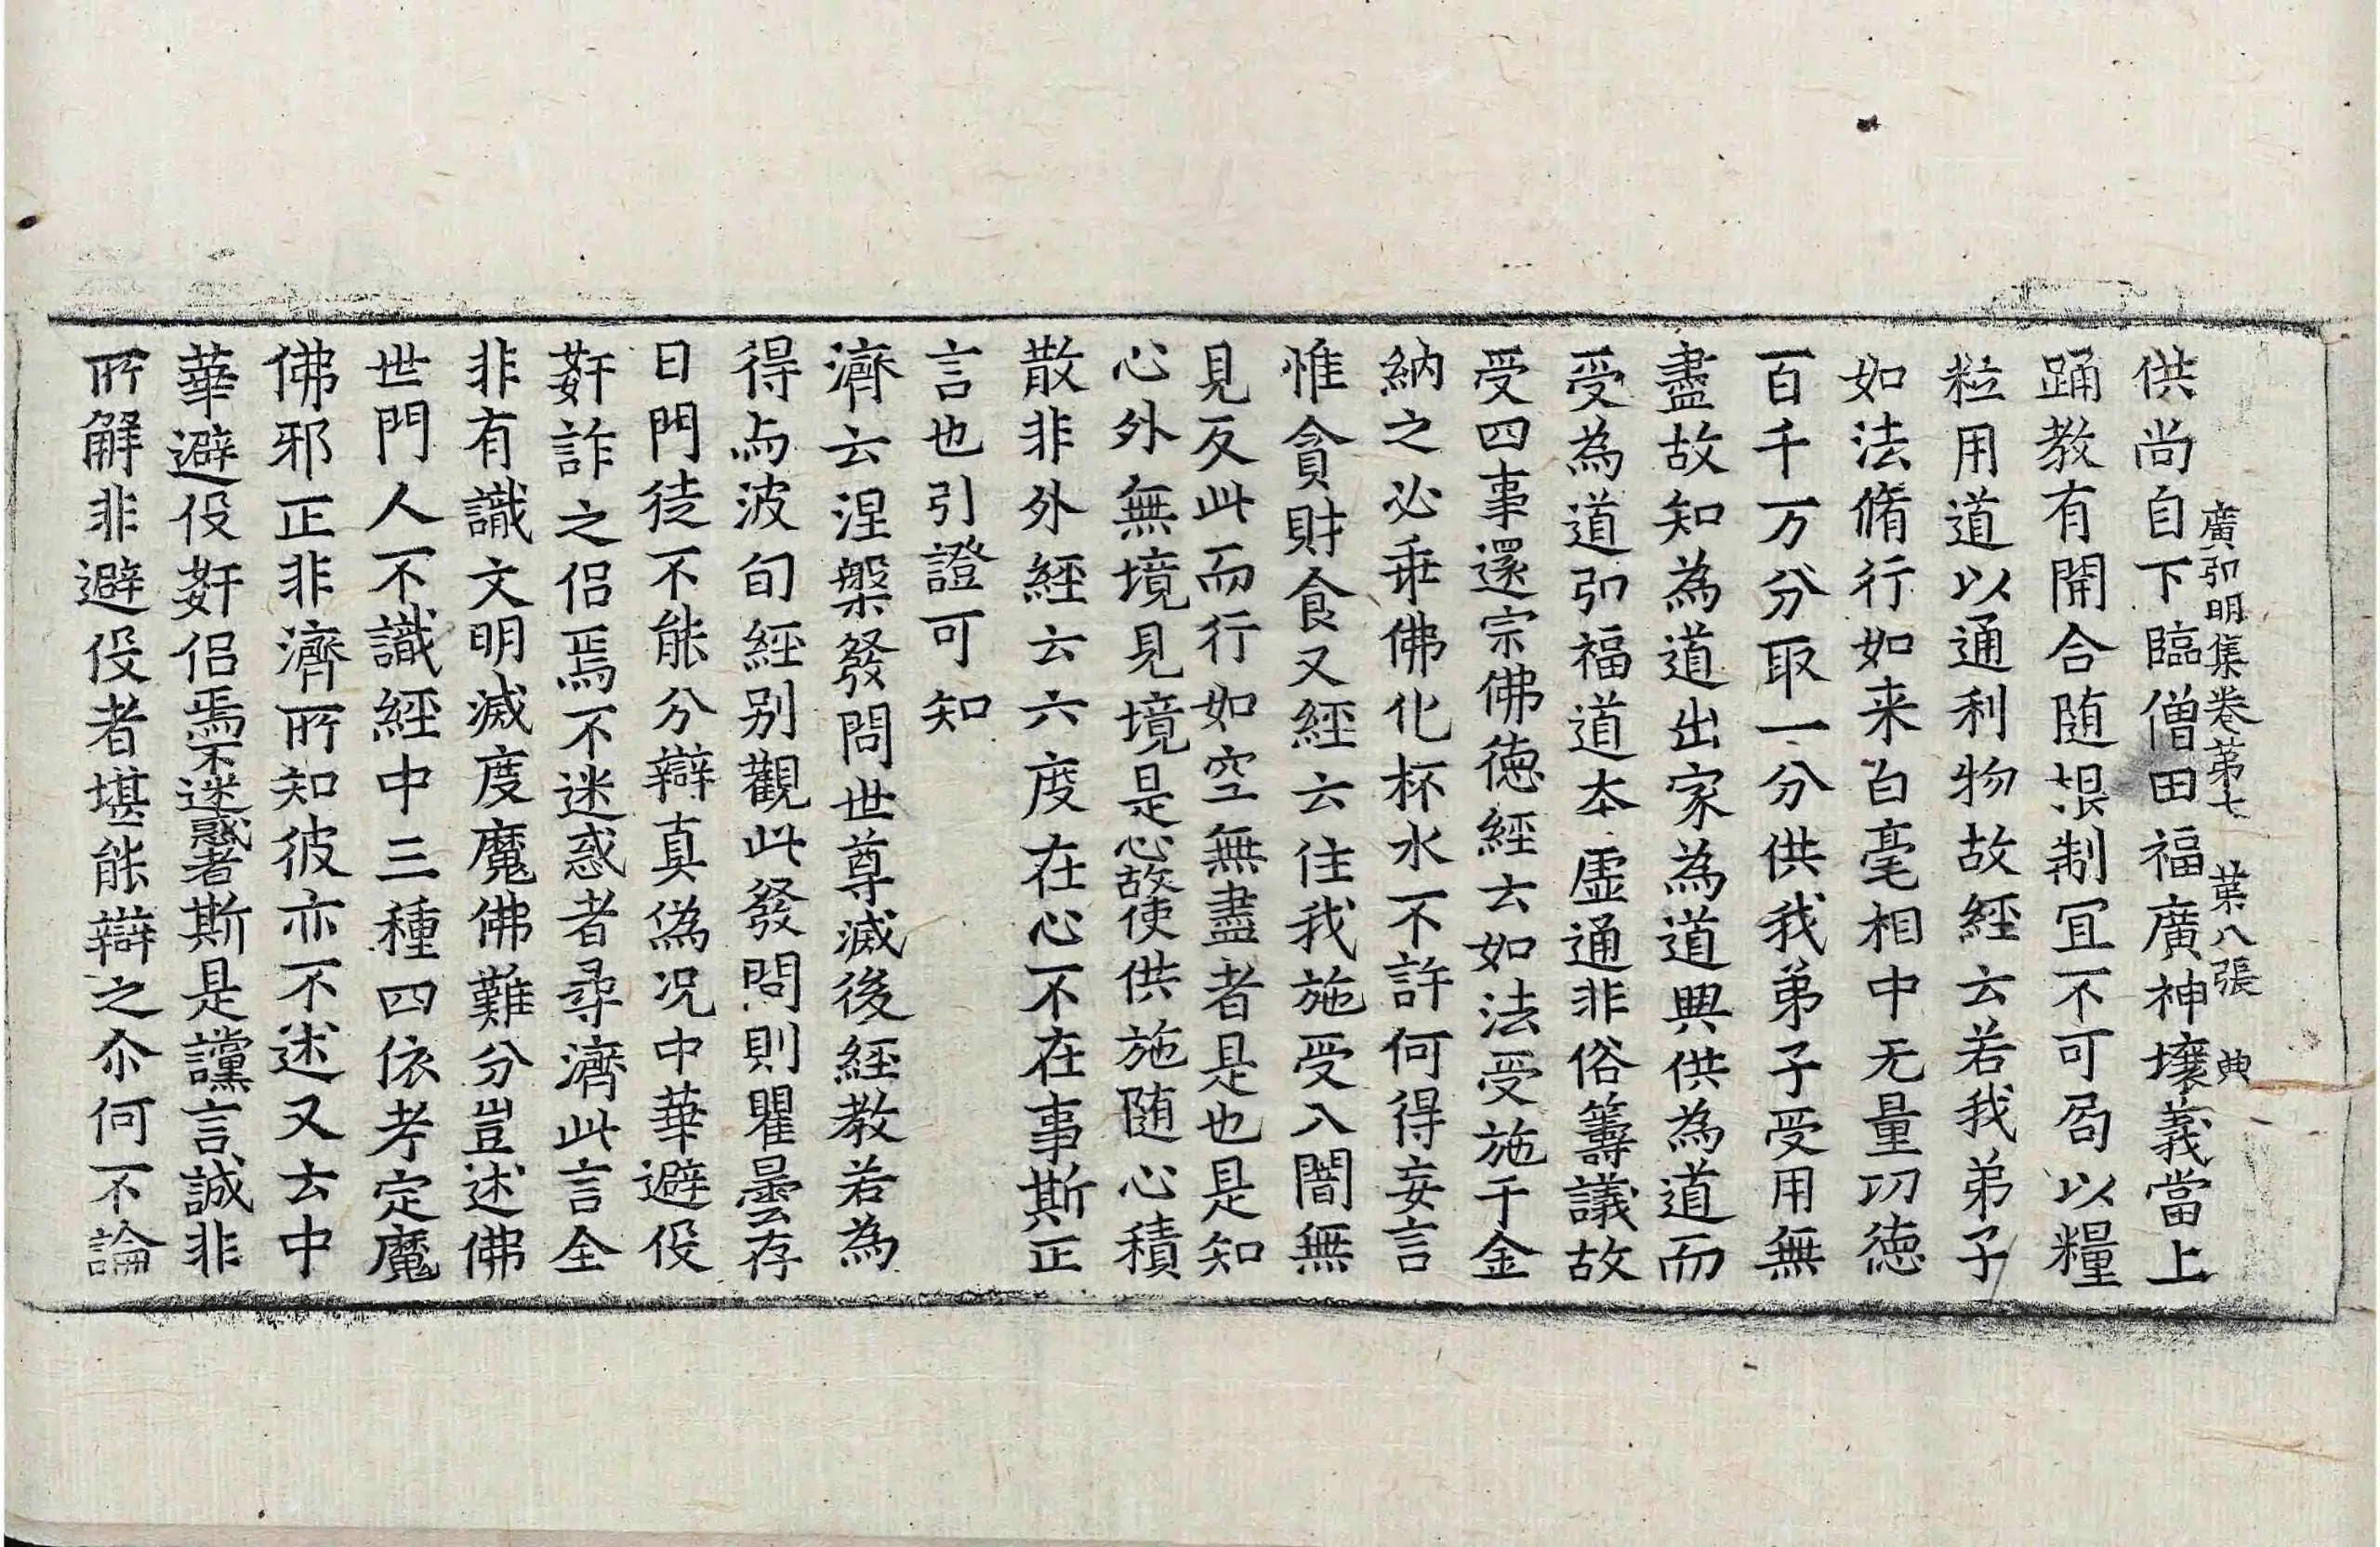 廣弘明集卷第七 第八張 典
供尚自下臨僧田福廣神壤義當上
踊教有開合随㨿制冝不可局以糧
粒用道以通利物故經云若我弟子
如法脩行如来白毫相中无量功徳
百千万分取一分供我弟子受用無
盡故知為道出家為道興供為道而
受為道引福道本虛通非俗籌議故
受四事還宗佛徳經云如法受施千金
納之必乖佛化杯水不許何得妄言
惟貪財食又經云住我施受入闇無
見反此而行如空無盡者是也是知
心外無境見境是心故使供施随心積
散非外經云六度在心不在事斯正
言也引證可知
濟云涅槃發問世尊滅後經教若為
得与波旬經别觀此發問則瞿曇存
日門徒不能分辯真偽况中華避役
姧詐之侣焉不迷惑者尋濟此言全
非有識文明滅度魔佛難分豈述佛
世門人不識經中三種四依考定魔
佛邪正非濟所知彼亦不述又云中
華避役姧侣焉不迷惑者斯是讜言誠非
所解非避役者堪能辯之尒何不論